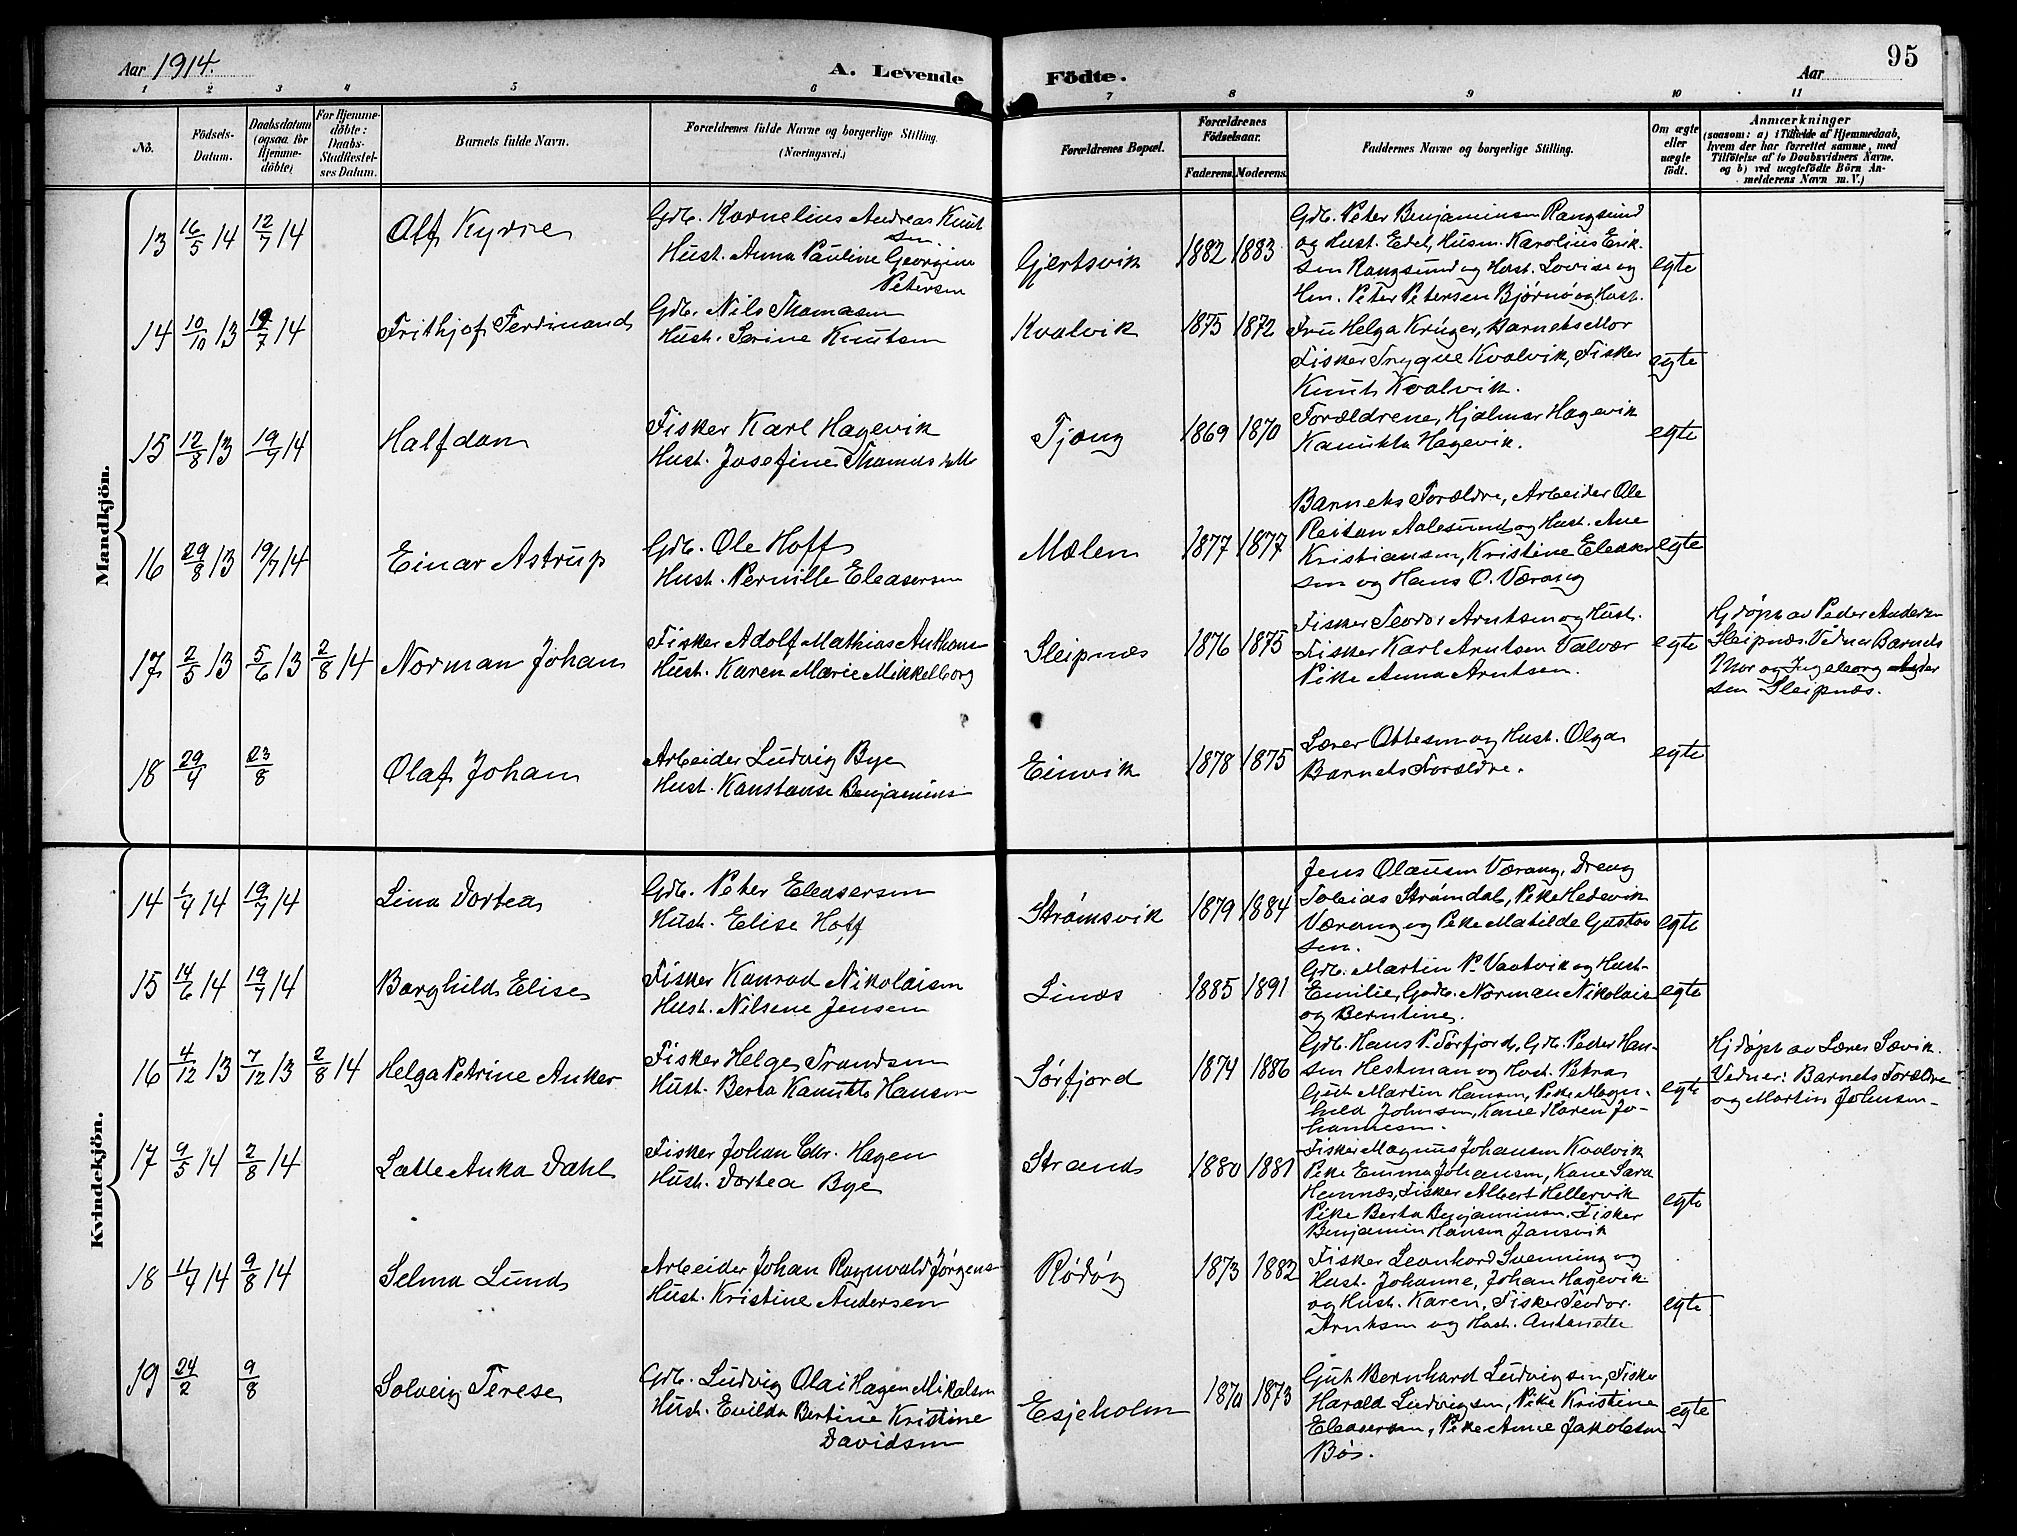 Aar 1914.
A. Levende Födte.
Aar
95
1 2 3 4 5 6 7 8 9 10 11
No.
Födsels-Datum.
Daabsdatum (ogsaa for Hjemme-döbte)
For Hjemme-döbte: Daabs-Stadfæstelses Datum.
Barnets fulde Navn.
Forældrenes fulde Navne og borgerlige Stilling.
(Næringsvei.)
Forældrenes Bopæl.
Forældrenes Födselsaar.
Faderens. Moderens.
Faddernes Navne og borgerlige Stilling.
Om ægte eller uægte födt.
Anmærkninger
(saasom: a) i Tilfælde af Hjemmedaab,
hvem der har forrettet samme, med
Tilföielse af to Daabsvidners Navne.
og b) ved uægtefödte Börn An-
melderens Navn m. V.)
Mandkjön.
13 16/5 14 12/7 14 Alf Kyrre
Gdb. Kornelius Andreas Knut
sen.
Hust. Anna Pauline Georgine
Petersen
Gjertsvik 1882 1883
Gdb. Peter Benjaminsen Rangsund
og Hust. Edel, Husm. Karolius Erik-
sen Rangsund og Hust. Lovise og
Hm. Peter Petersen Bjørnø og Hust.
egte
14 10/10 13 12/7 14 Frithjof Ferdinand
Gdb. Nils Thomasen
Hust. Serine Knutsen
Kvalvik 1875 1872
Fru Helga Krüger, Barnets Mor
Fisker Trygve Kvalvik, Fisker
Knut Kvalvik.
egte
15 12/8 13 19/7 14 Halfdan
Fisker Karl Hagevik
Hust. Josefine
Tjong 1869 1870
Forældrene, Hjalmar Hagevik
Hagevik.
egte
16 29/8 13 19/7 14 Einar Astrup
Gdb. Ole Hoff
Hust. Pernille Eleasersen
Mælen 1877 1877
Barnets Forældre, Arbeider Ole
Reitan Aalesund og Hust. Ane
Kristiansen, Kristine Eleaser
sen og Hans O. Værang
egte
17 2/5 13 5/6 13 2/8 14 Norman Johan
Fisker Adolf Mathias Anthons
Hust. Karen Marie Mikkelborg
Sleipnæs 1876 1875
Fisker Teodor Arntsen og Hust.
Fisker Karl Arntsen Valvær
Pike Anna Arntsen.
egte
Hj døpt av Peder Anders
Sleipnæs. Vidner Barnets
Mor og Ingeborg
sen Sleipnæs.
18 29/4 23/8 Olaf Johan
Arbeider Ludvig Bye
Hust. Konstanse Benjamins
Einvik 1878 1875
Lærer Ottesen og Hust. Olga
Barnets Forældre.
egte
Kvindekjön.
14 1/4 14 19/7 14 Lina Dortea
Gdb. Peter Eleasersen
Hust. Elise Hoff
Strømsvik 1879 1884
Jens Olausen Værang, Dreng
Tobias Strømdal, Pike Hedevik
Værang og Pike Matilde Gustav
sen.
egte
15 14/6 14 19/7 14 Borghild Elise
Fisker Konrad Nikolaisen
Hust. Nilsene Jensen
Linæs 1885 1891
Gdb. Martin P. Vaatvik og Hust.
Emilie, Gdb. Norman Nikolais
og Berntine.
egte
16 4/12 13 7/12 13 2/8 14 Helga Petrine Anker
Fisker Helge Trondsen
Hust. Berta Hansen
Sørfjord 1874 1886
Gdb. Hans P. Sørfjord, Gdb. Peder Han-
sen Hestman og Hust. Petra
Gut Martin Hansen, Pike Magn-
hild Johnsen, Kone Karen Jo-
hannesen.
egte
Hj døpt av Lærer Sævik.
Vidner: Barnets Forældre
og Martin Johnsen.
17 9/5 14 2/8 14 Lætte Anka Dahl
Fisker Johan Chr. Hagen
Hust. Dortea Bye
Strand 1880 1881
Fisker Magnus Johansen Kvalvik
Pike Emma Johansen, Kone Sara
Hemnæs, Fisker Albert Hellervik
Pike Berta Benjaminsen, Fisker
Benjamin Hansen Jansvik
egte
18 11/4 14 9/8 14 Selma Lund
Arbeider Johan Ragnvald Jørgens
Hust. Kristine Andersen
Rødøy 1873 1882
Fisker Leonhard Svenning og
Hust. Johanne, Johan Hagevik
og Hust. Karen, Fisker Teodor
Arntsen og Hust. Antonette
egte
19 24/2 9/8 Solveig Terese
Gdb. Ludvig Olai Hagen Mikalsen
Hust. Evilda Bertine Kristine
Davidsen
Esjeholm 1870 1873
Gut Bernhard Ludvigsen, Fisker
Harald Ludvigsen, Pike Kristine
Eleasersen, Pike Anne Jakobsen
Bøs.
egte